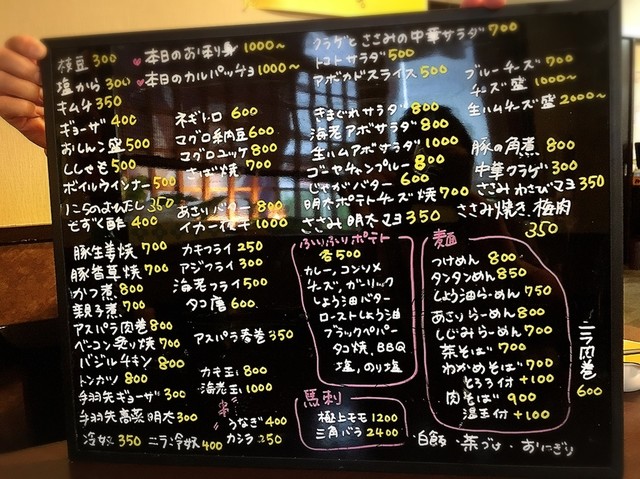 枝豆 300
塩から 300
キムチ 350
ギョーザ 400
おしんこ盛 500
ししゃも 500
ボイルウインナー 500
にらのおひたし 350
もずく酢 400
豚生姜焼 700
豚香草焼 700
かつ煮 800
親子煮 700
アスパラ肉巻 800
ベーコン炙り焼 700
バジルチキン 800
トンカツ 800
手羽先ギョーザ 300
手羽先高菜明太 300
冷奴 350
ニラ冷奴 400
♥本日のお刺身 1000〜
♥本日のカルパッチョ 1000〜
ネギトロ 600
マグロ納豆 600
マグロユッケ 800
さば焼 700
あさりバター 800
イカ一夜干 1000
カキフライ 250
アジフライ 300
海老フライ 500
タコ唐 600
アスパラ春巻 350
カキ玉 800
海老玉 1000
うなぎ 400
カシラ 250
クラゲとささみの中華サラダ 700
トマトサラダ 500
アボカドスライス 500
きまぐれサラダ 800
海老アボサラダ 800
生ハムアボサラダ 800
ゴーヤチャンプルー 800
じゃがバター 600
明太ポテトチーズ焼 700
ささみ明太マヨ 350
ブルーチーズ 700
チーズ盛 1000〜
生ハムチーズ盛 2000〜
豚の角煮 800
中華クラゲ 300
ささみわさびマヨ 350
ささみ焼き、梅肉
350
ふりふりポテト
各500
カレー、コンソメ
チーズ、ガーリック
しょう油バター
ローストしょう油
ブラックペパー
タコ焼、BBQ
塩、のり塩
馬刺
極上モモ 1200
三角バラ 2400
麺
つけめん 800
タンタンめん 850
しょう油らーめん 750
あさりらーめん 800
しじみらーめん 700
茶そば 700
わかめそば 700
とろろ付 +100
肉そば 900
温玉付 +100
ニラ肉巻
600
・白飯 ・茶づけ ・おにぎり